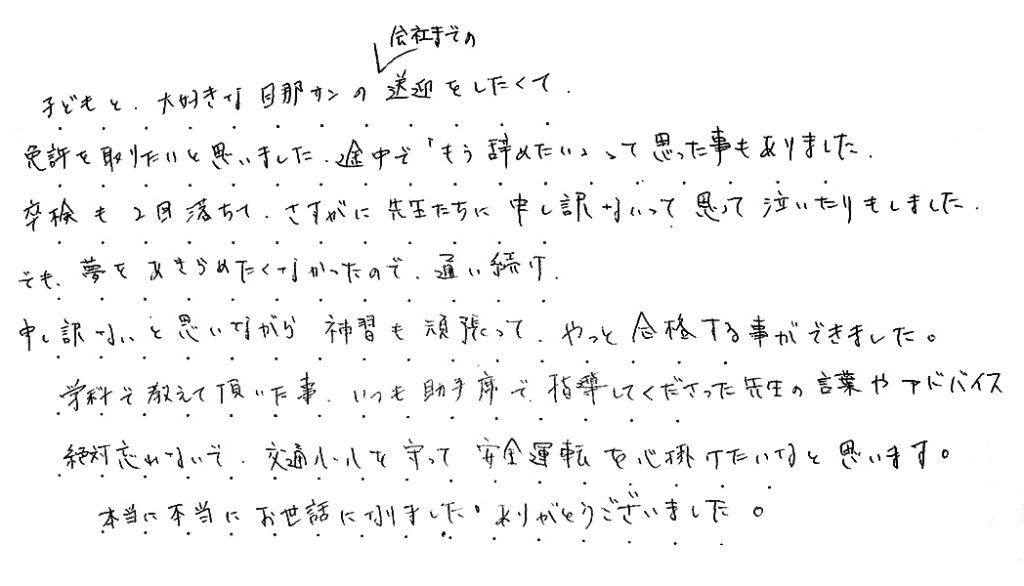 会社までの
子どもと、大好きな旦那サンの送迎をしたくて、
免許を取りたいと思いました。途中で「もう辞めたい」って思った事もありました。
卒検も2回落ちて、さすがに先生たちに申し訳ないって思って泣いたりもしました。
でも、夢をあきらめたくなかったので、通い続け、
申し訳ないと思いながら補習も頑張って、やっと合格する事ができました。
学科で教えて頂いた事、いつも助手席で、指導してくださった先生の言葉やアドバイス
絶対忘れないで、交通ルールを守って安全運転を心掛けたいなと思います。
本当に本当にお世話になりました。ありがとうございました。